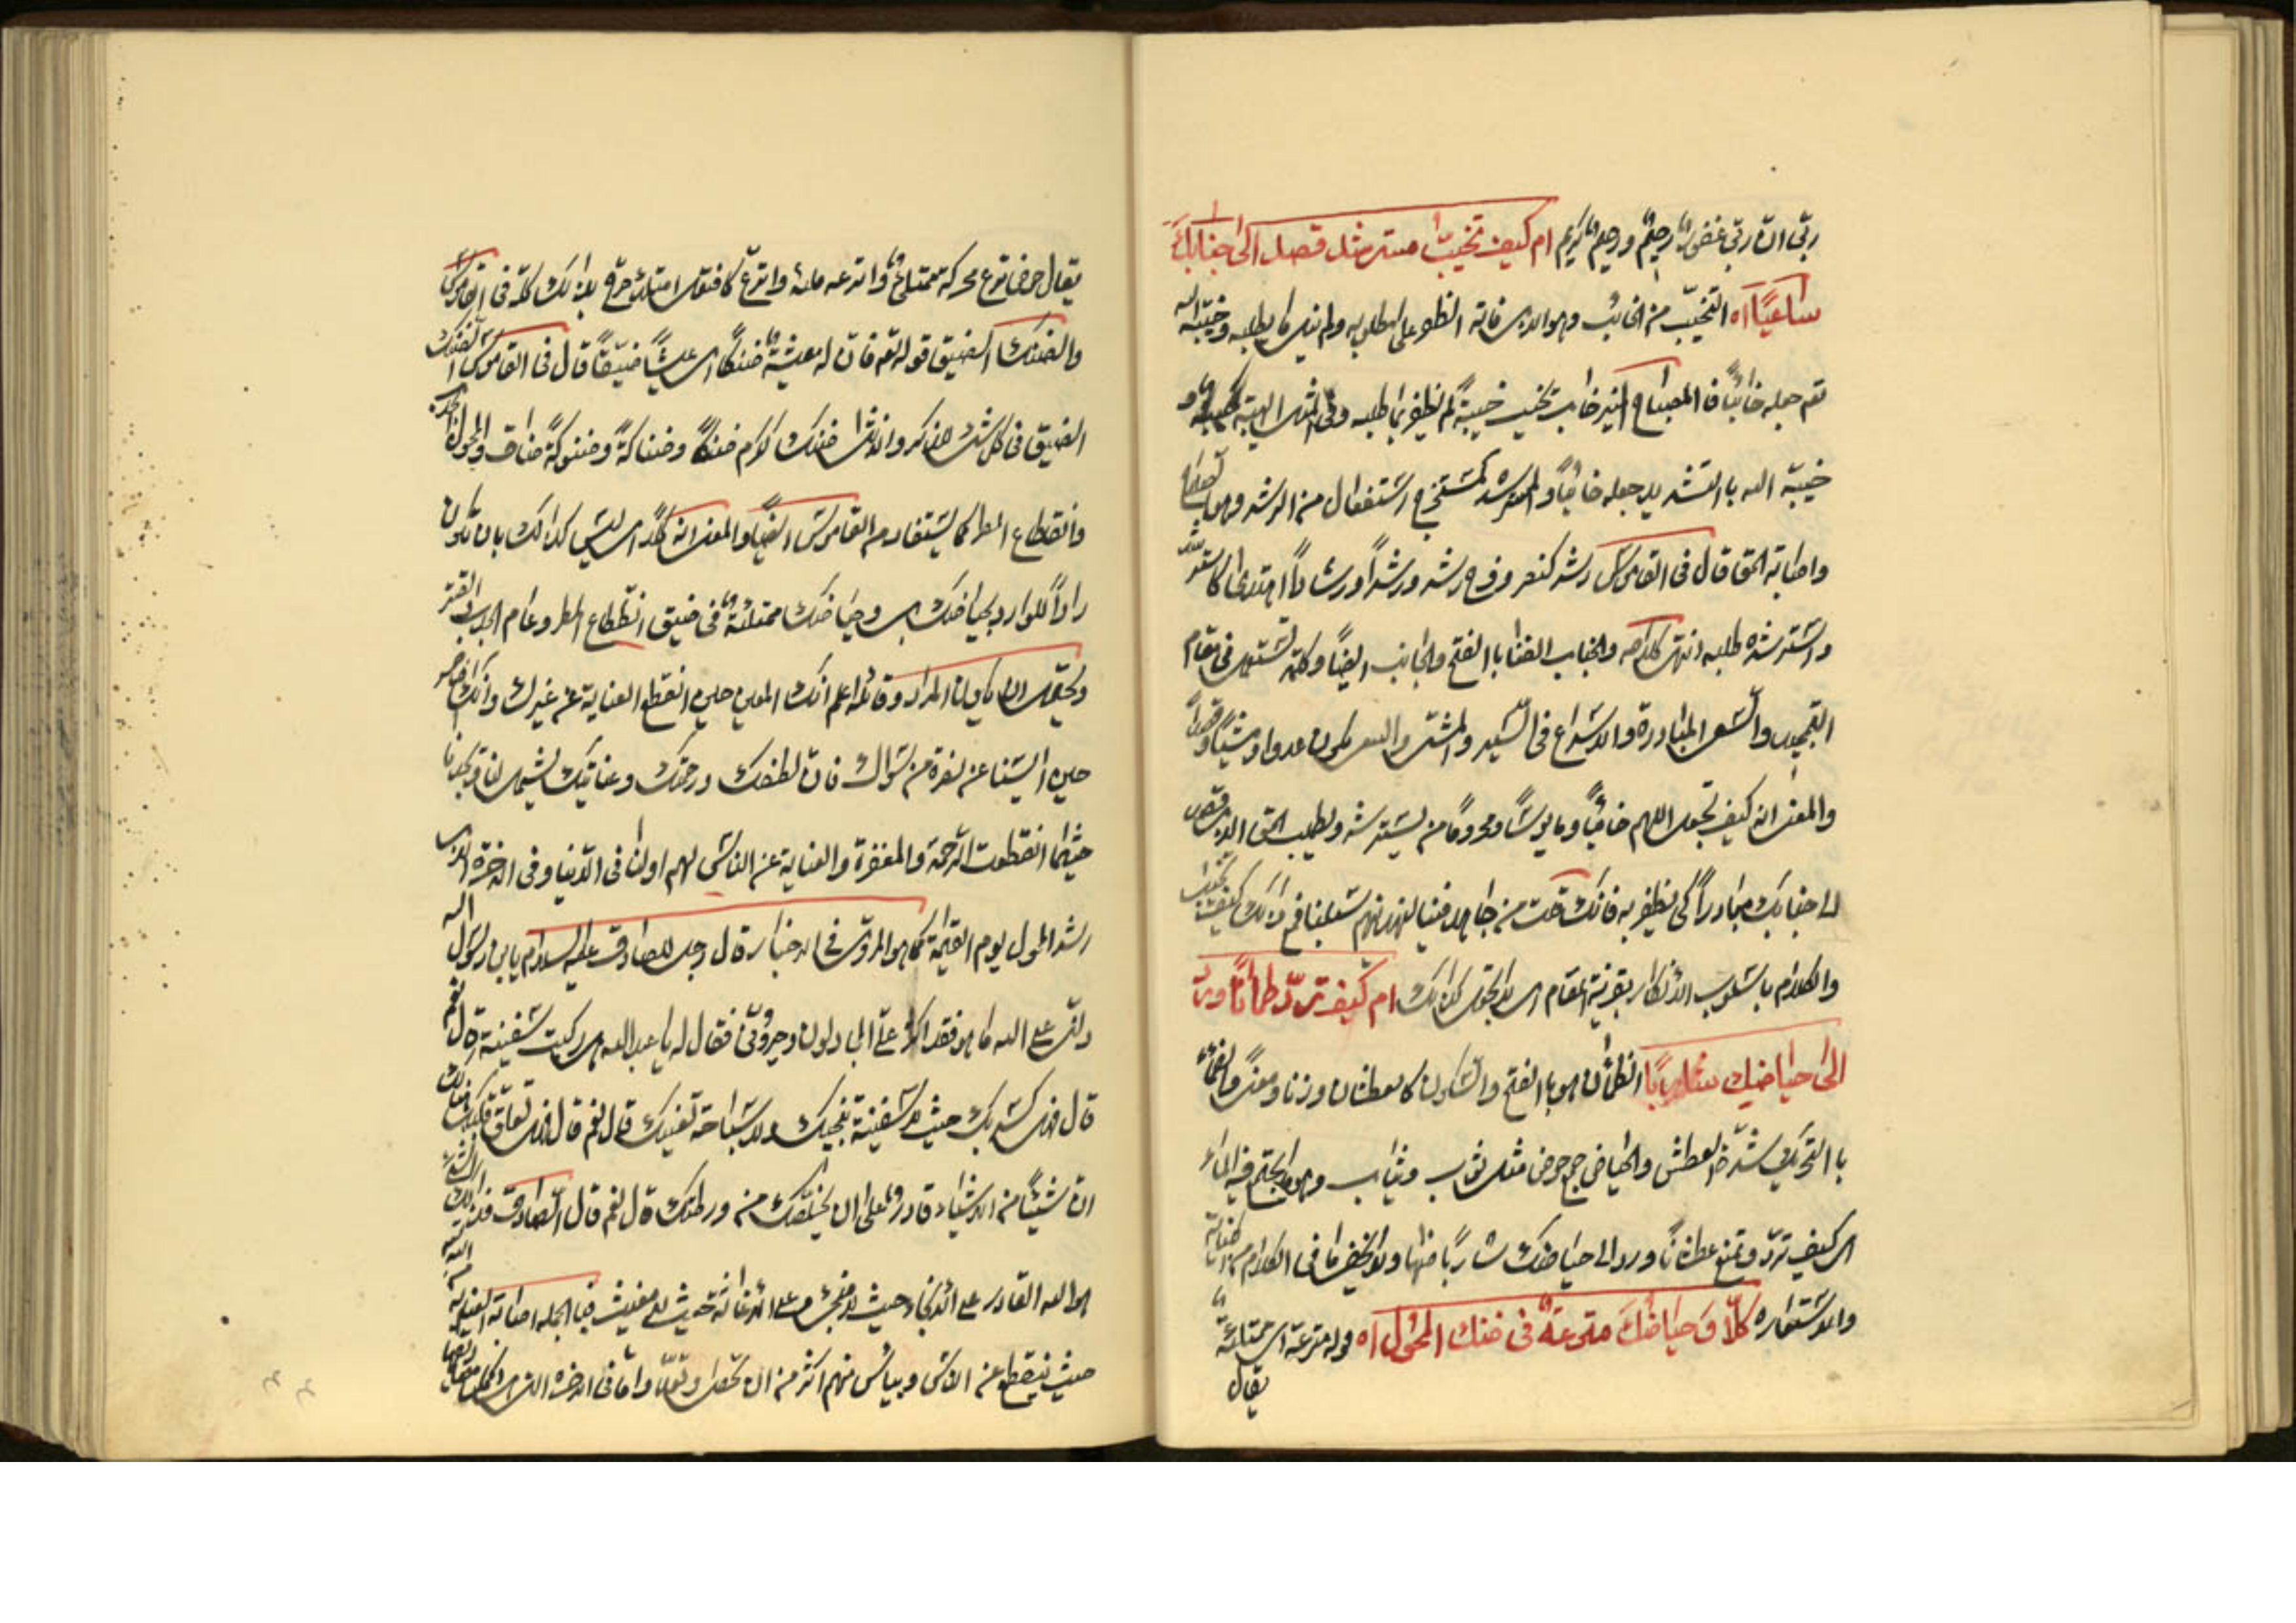 ربّى انّ ربّى غفور رحيم ورحيم كريم ام كيف تخيّب مسترشدا قصد الى جنابك
ساعيًا اه التخيّب من الخائب وهو الذى فاته الظفر على المطلوب ولم ينل ما يطلبه وخيّبه الله
تعم جعله خائبًا فى المصباح المنير خاب يخيب خيبةً لم يظفر بما طلبه وفى المثل الهيبة خيبة و
خيّبه الله بالتشديد جعله خائبًا والمسترشد كمستخرج استفعال من الرشد وهو
واصابة الحق قال فى القاموس رشد كنصر وفرح رشدا ورشداً ورشاداً اهتدى كاسترشد
واسترشده طلبه انتهى كلامه والجناب الفنا بالفتح والجانب ايضًا وكلمة تستعمل فى مقام
التبجيل والسعى المبادرة والاسراع فى السير والمشى والسعى يكون عدوا ومشيًا وقصداً
والمعنى انه كيف تجعل اللهم خائبًا ومايوسًا ومحرومًا من يسترشد ويطلب الحق الذى قصد
الى جنابك مبادراً كى يظفر به فانك قلت من جاهد فينا لنهدينهم سبلنا فمع ذلك كيف تخيّب
والكلام باسلوب الانكار بقرينة المقام اى لا تجعل كذلك ام كيف تردّ ظمآنًا ورد
الى حياضك شاربًا الظمآن هو بالفتح والسكون كالعطشان وزنا ومعنىً والظمأ
بالتحريك شدّة العطش والحياض جمع حوض مثل ثوب وثياب وهو ما يجتمع فيه الماء
اى كيف تردّ وتمنع عطشانًا ورد الى حياضك شاربًا منها ولا يخفى ما فى الكلام من الكناية
والاستعاره كلّا وَحياضُكَ مترعةٌ فى ضنك المحُول اه قوله مترعة اى ممتلئة
يقال
يقال حوض ترع محركة ممتلئ واترعه ملئه واترع كافتعل امتلئ صرّح بذلك كله فى القاموس
والضنك الضيق قوله تعم فان له معيشة ضنكًا اى عيشًا ضيّقًا قال فى القاموس الضنك
الضيق فى كل شئ للذكر والانثى ضنك ككرم ضنكًا وضناكةً وضنوكةً ضاق والمحول الجدب
وانقطاع المطر كما يستفاد من القاموس ايضًا والمعنى انه كلّا اى ليس كذلك بان تكون
رادًا للوارد بحياضك اى وحياضك ممتلئة فى ضيق انقطاع المطر وعام الجدب والقتر
ويحتمل ان يكون المراد وقائله اعلم انك المعين حين انقطع العناية عن غيرك وانك الناصر
حين آيسنا عن نصرة من سواك فان لطفك ورحمتك وعنايتك يشمل لنا ويكفينا
حيثما انقطعت الرحمة والمغفرة والعناية عن الناس لهم اولنا فى الدنيا وفى الاخرة الذى
رشد المحول يوم القيمة كما هو المروىّ فى الاخبار قال رجل للصادق عليه السلام يابن رسول الله
دلنى على الله ما هو فقد اكثر علىّ المجادلون وحيّرونى فقال له يا عبد الله هل ركبت سفينة قال نعم
قال فهل كسر بك حيث لا سفينة تنجيك ولا سباحة تغنيك قال نعم قال فهل تعلّق قلبك هنالك
انّ شيئًا من الاشياء قادر على ان يخلّصك من ورطتك قال نعم قال الصّادق فذلك الشئ
هو الله القادر على الانجاء حيث لا منجى وعلى الاغاثة حيث لا مغيث فبالجمله اصابة العناية من الله
حيث ينقطع عن الناس وييأس منهم اكثر من ان تحصى وتعدّ واما فى الاخرة